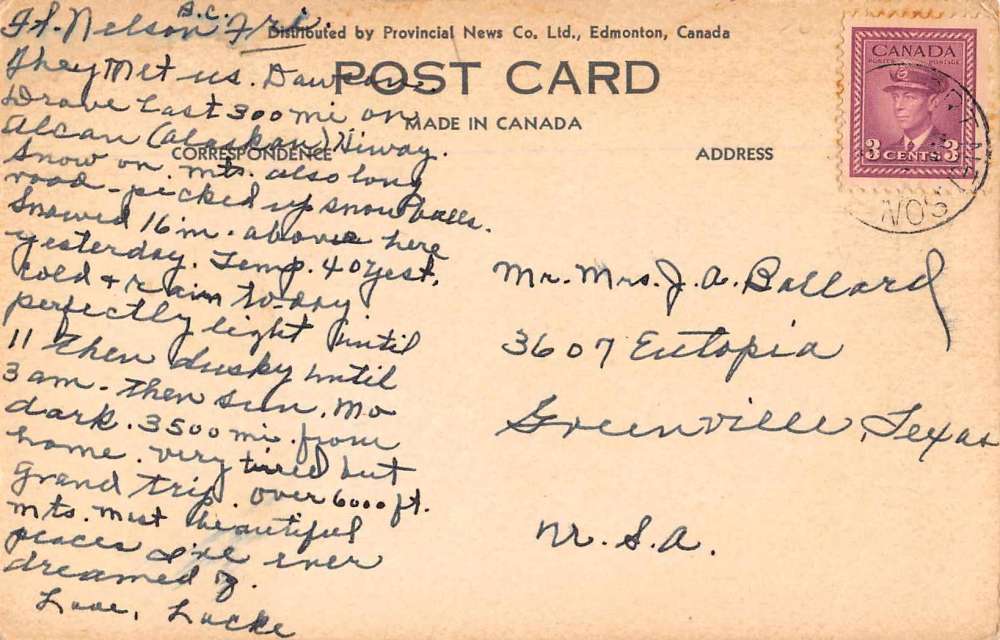 B.C.
Ft. Nelson Fri.
Distributed by Provincial News Co. Ltd., Edmonton, Canada
POST CARD
MADE IN CANADA
CORRESPONDENCE
ADDRESS
They Met us. Dawson.
Drove last 300 mi on
Alcan (Alaskan) Hiway.
Snow on mts. also long
road - picked up snow balls.
Snowed 16 in. above here
yesterday. Temp. 40 yest.
cold & rain to-day
perfectly light until
11 then dusky until
3 am. then sun. No
dark. 3500 mi. from
home. very tired but
grand trip. over 6000 ft.
mts. most beautiful
places I've ever
dreamed of.
Love, Locke
CANADA
POSTES POSTAGE
3 CENTS 3
FORT NELSON
Mr. Mrs. J. A. Ballard
3607 Eutopia
Greenville, Texas
U.S.A.